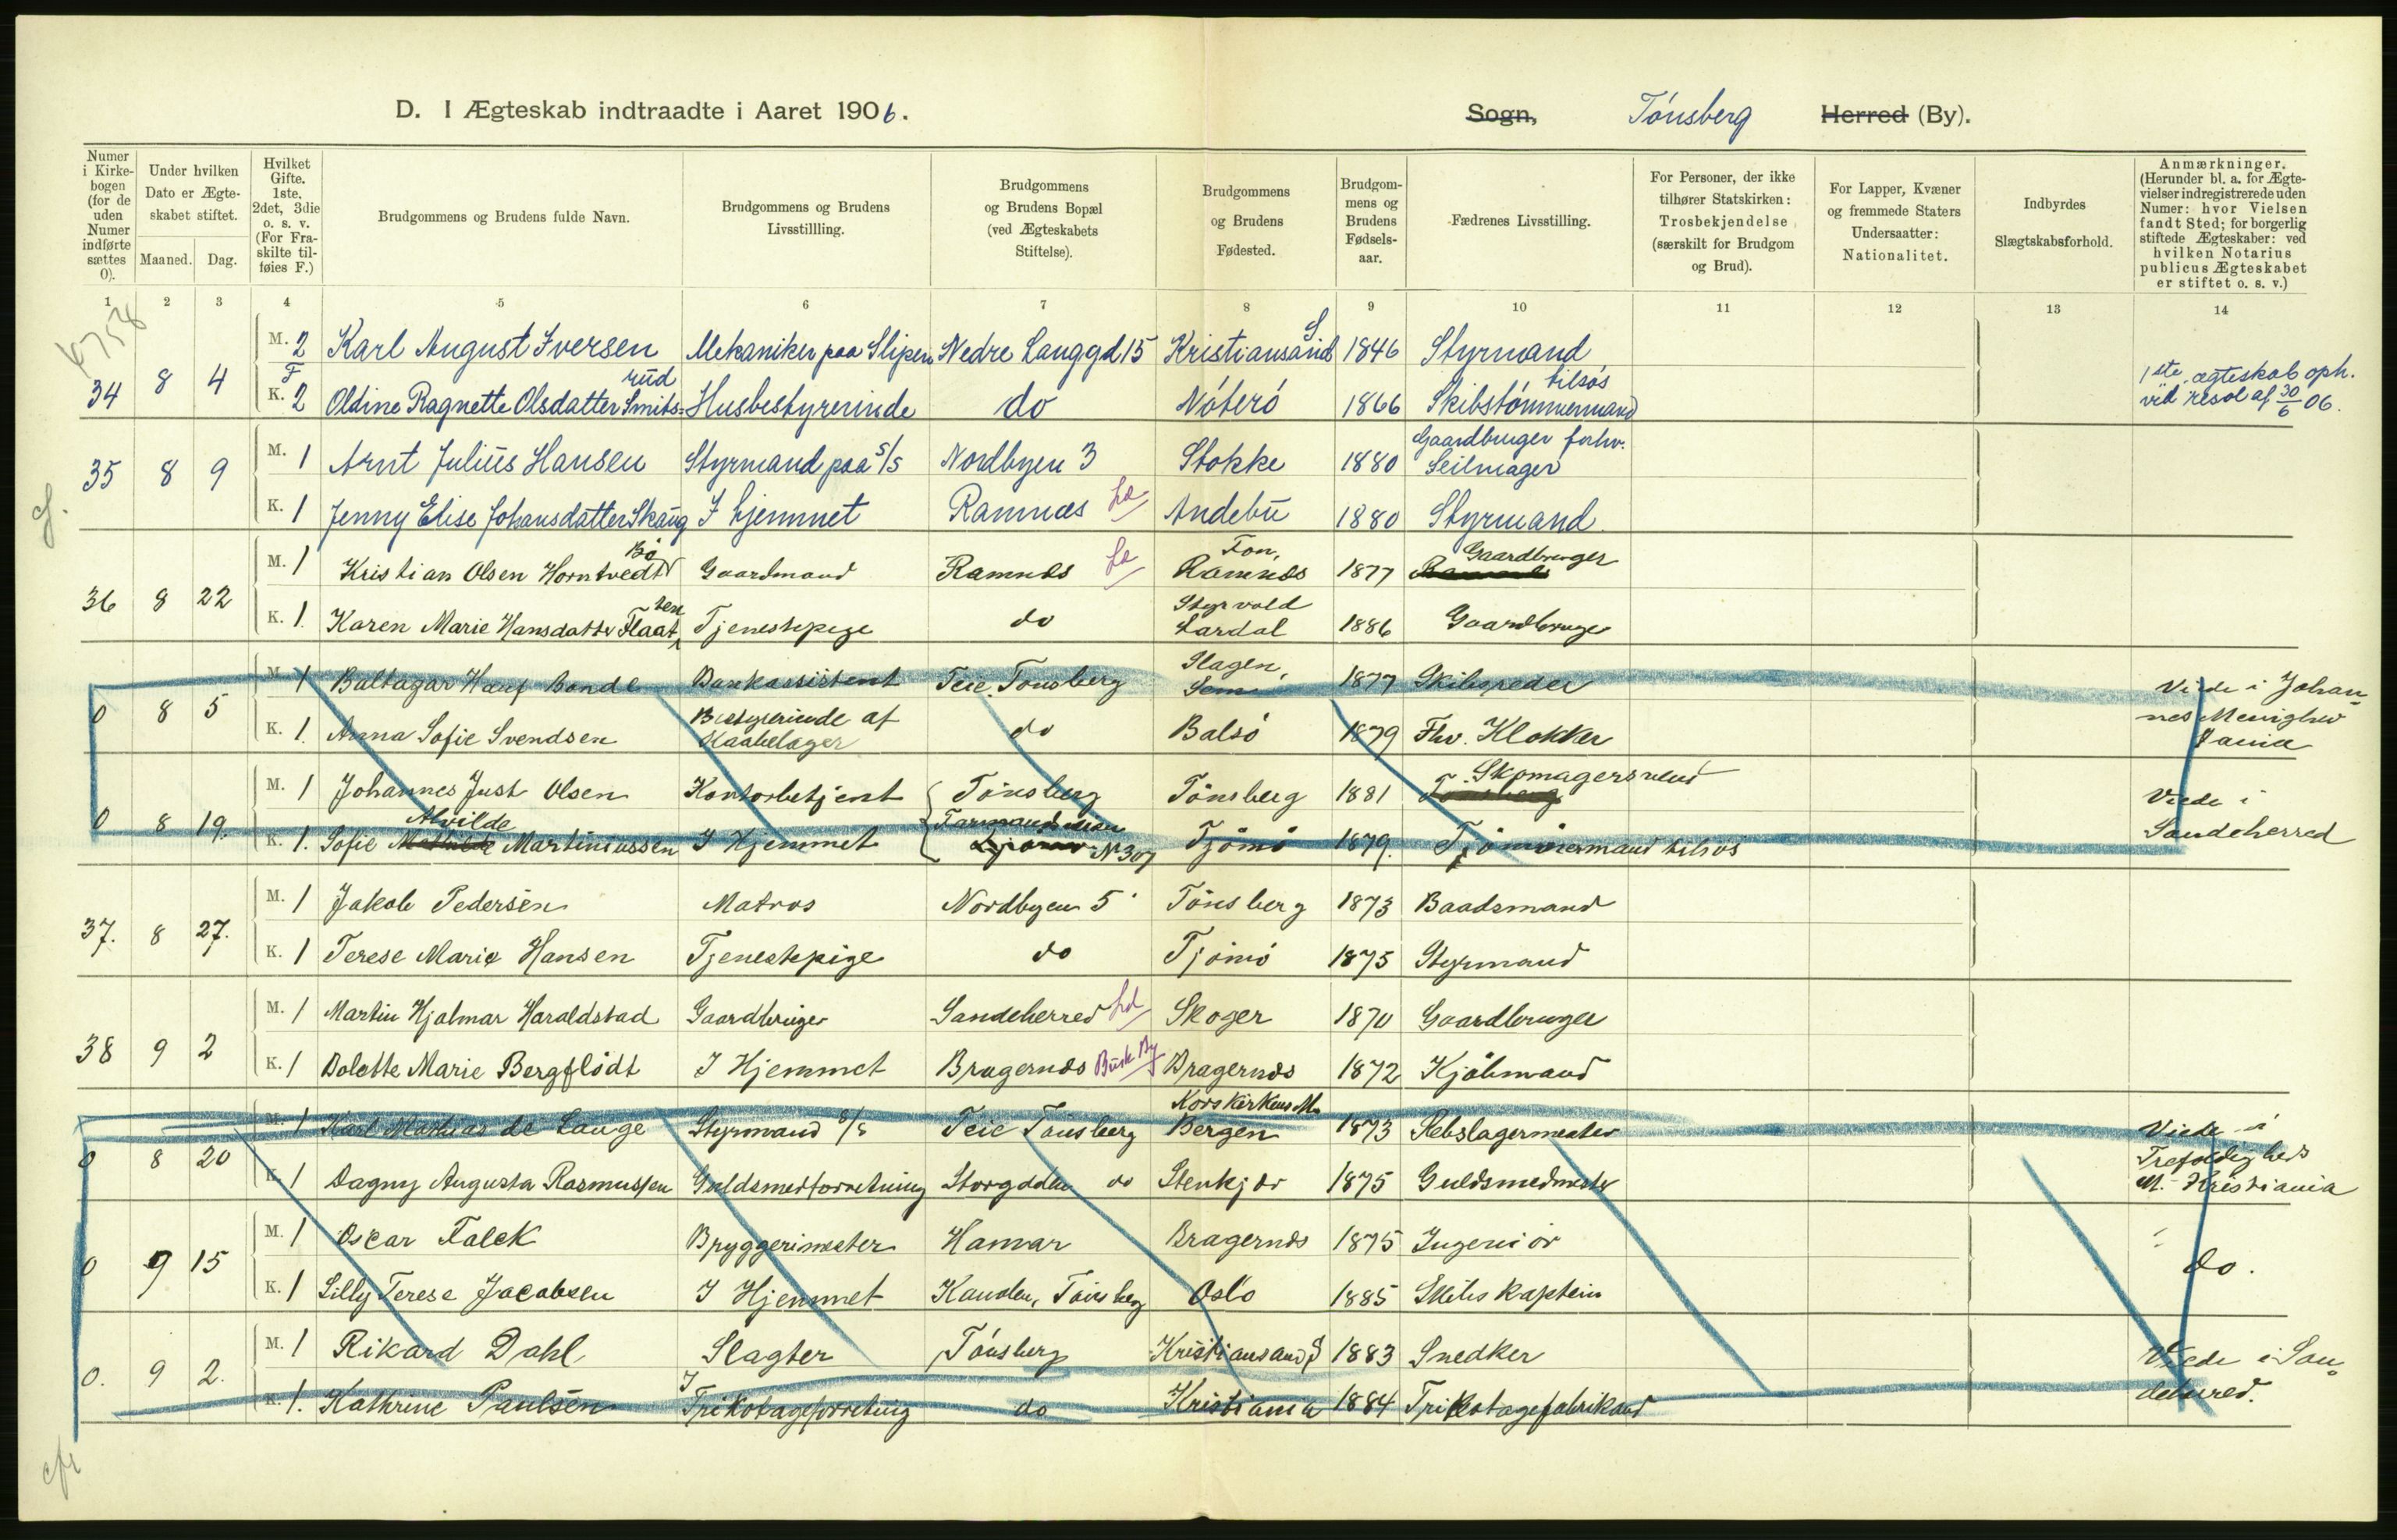 D. I Ægteskab indtraadte i Aaret 1906.
Sogn, Tönsberg Herred (By).
Numer i Kirkebogen (for de uden Numer indførte sættes 0).
Under hvilken Dato er Ægteskabet stiftet.
Maaned. Dag.
Hvilket Gifte. 1ste, 2det, 3die o. s. v. (For Fraskilte tilføies F.)
Brudgommens og Brudens fulde Navn.
Brudgommens og Brudens Livsstillling.
Brudgommens og Brudens Bopæl (ved Ægteskabets Stiftelse).
Brudgommens og Brudens Fødested.
Brudgommens og Brudens Fødselsaar.
Fædrenes Livsstilling.
For Personer, der ikke tilhører Statskirken: Trosbekjendelse (særskilt for Brudgom og Brud).
For Lapper, Kvæner og fremmede Staters Undersaatter: Nationalitet.
Indbyrdes Slægtskabsforhold.
Anmærkninger. (Herunder bl. a. for Ægtevielser indregistrerede uden Numer: hvor Vielsen fandt Sted; for borgerlig stiftede Ægteskaber: ved hvilken Notarius publicus Ægteskabet er stiftet o. s. v.)
1 2 3 4 5 6 7 8 9 10 11 12 13 14
34 8 4
M. 2 Karl August Iversen Mekaniker paa Slipen Nedre Langgd 15 Kristiansand S 1846 Styrmand
F
K. 2 Oldine Ragnette Olsdatter Smitsrud Husbestyrerinde do Nöterö 1866 Skibstömmermand tilsös
1ste ægteskab oph. ved resol af 30/6 06.
35 8 9
M. 1 Arnt Julius Hansen Styrmand paa S/S Nordbyen 3 Stokke 1880 Gaardbruger forhv. Seilmager
K. 1 Jenny Elise Johansdatter Skaug I hjemmet Ramnæs Andebu 1880 Styrmand
36 8 22
M. 1 Kristian Olsen Horntvedt Bö Gaardmand Ramnæs Fon, Ramnæs 1877 Gaardbruger
K. 1 Karen Marie Hansdatter Flaaten Tjenestepige do Styrvold Lardal 1886 Gaardbruger
0 8 5
M. 1 Baltazar Bonde Bankassistent Teie Tönsberg Slagen, Sem 1877 Skibsreder
K. 1 Anna Sofie Svendsen Bestyrerinde af do Balsö 1879 Fhv. Klokker
Viede i Johannes Menighed
0 8 19.
M. 1 Johannes Just Olsen Kontorbetjent Tönsberg Tönsberg 1881 Skomagersvend
K. 1. Sofie Alvilde Martiniussen I Hjemmet No 307 Tjömö 1879. Tjömmermand tilsös
Viede i Sandeherred
37. 8 27.
M. 1 Jakob Pedersen Matros Nordbyen 5 Tönsberg 1873 Baadsmand
K. 1 Terese Marie Hansen Tjenestepige do Tjömö 1875 Styrmand
38 9 2
M. 1 Martin Hjalmar Haraldstad Gaardbruger Sandeherred Skoger 1870 Gaardbruger
K. 1 Dolette Marie Bergflödt I Hjemmet Bragernæs Busk By Bragernæs 1872 Kjöbmand
0 8 20
M. 1 Karl Mathias de Lange Styrmand S/S Teie Tönsberg Korskirkens M. Bergen 1873 Rebslagermester
K. 1 Dagny Augusta Rasmussen Guldsmedforretning do Stenkjær 1875 Guldsmedmester
Viede i Trefoldigheds M. Kristiania
0 9 15
M. 1 Oscar Falck Bryggerimester Hamar Bragernæs 1875 Ingeniör
K. 1 Lilly Terese Jacobsen I Hjemmet Kanalen, Tönsberg Oslo 1885 Skibskaptein
do.
0. 9 2.
M. 1 Rikard Dahl Slagter Tönsberg Kristiansand S 1883 Snedker
K. 1. Kathrine Paulsen I Trikotageforretning do Kristiania 1884 Trikotagefabrikant
Viede i Sandeherred.